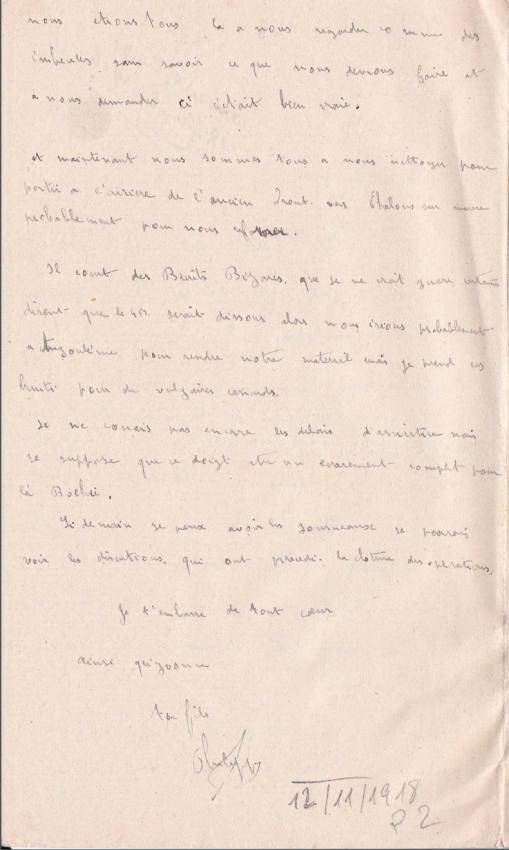 nous etions tous la a nous regarder comme des
imbeciles sans savoir ce que nous devions faire et
a nous demander ci c'etait bien vraie.
et maintenant nous sommes tous a nous nettoyer pour
partir a l'arriere de l'ancien front vers Chalons sur marne
probablement pour nous reformer.
Il court des Bruits Bizares, que je ne croit guere
disant que le serait dissous alors nous irions probablement
a Angoulême pour rendre notre materiel mais je prend ces
bruits pour de vulgaires canards.
Je ne connais pas encore les details d'armistice mais
je suppose que ce doigt etre un ecrasement complet pour
la Bochie.
Si demain je peux avoir les journeaux je pourrais
voir les discutions, qui ont precedé la cloture des operations.
Je t'embrasse de tout cœur
ainsi qu'yvonne
ton fils
12/11/1918
P 2